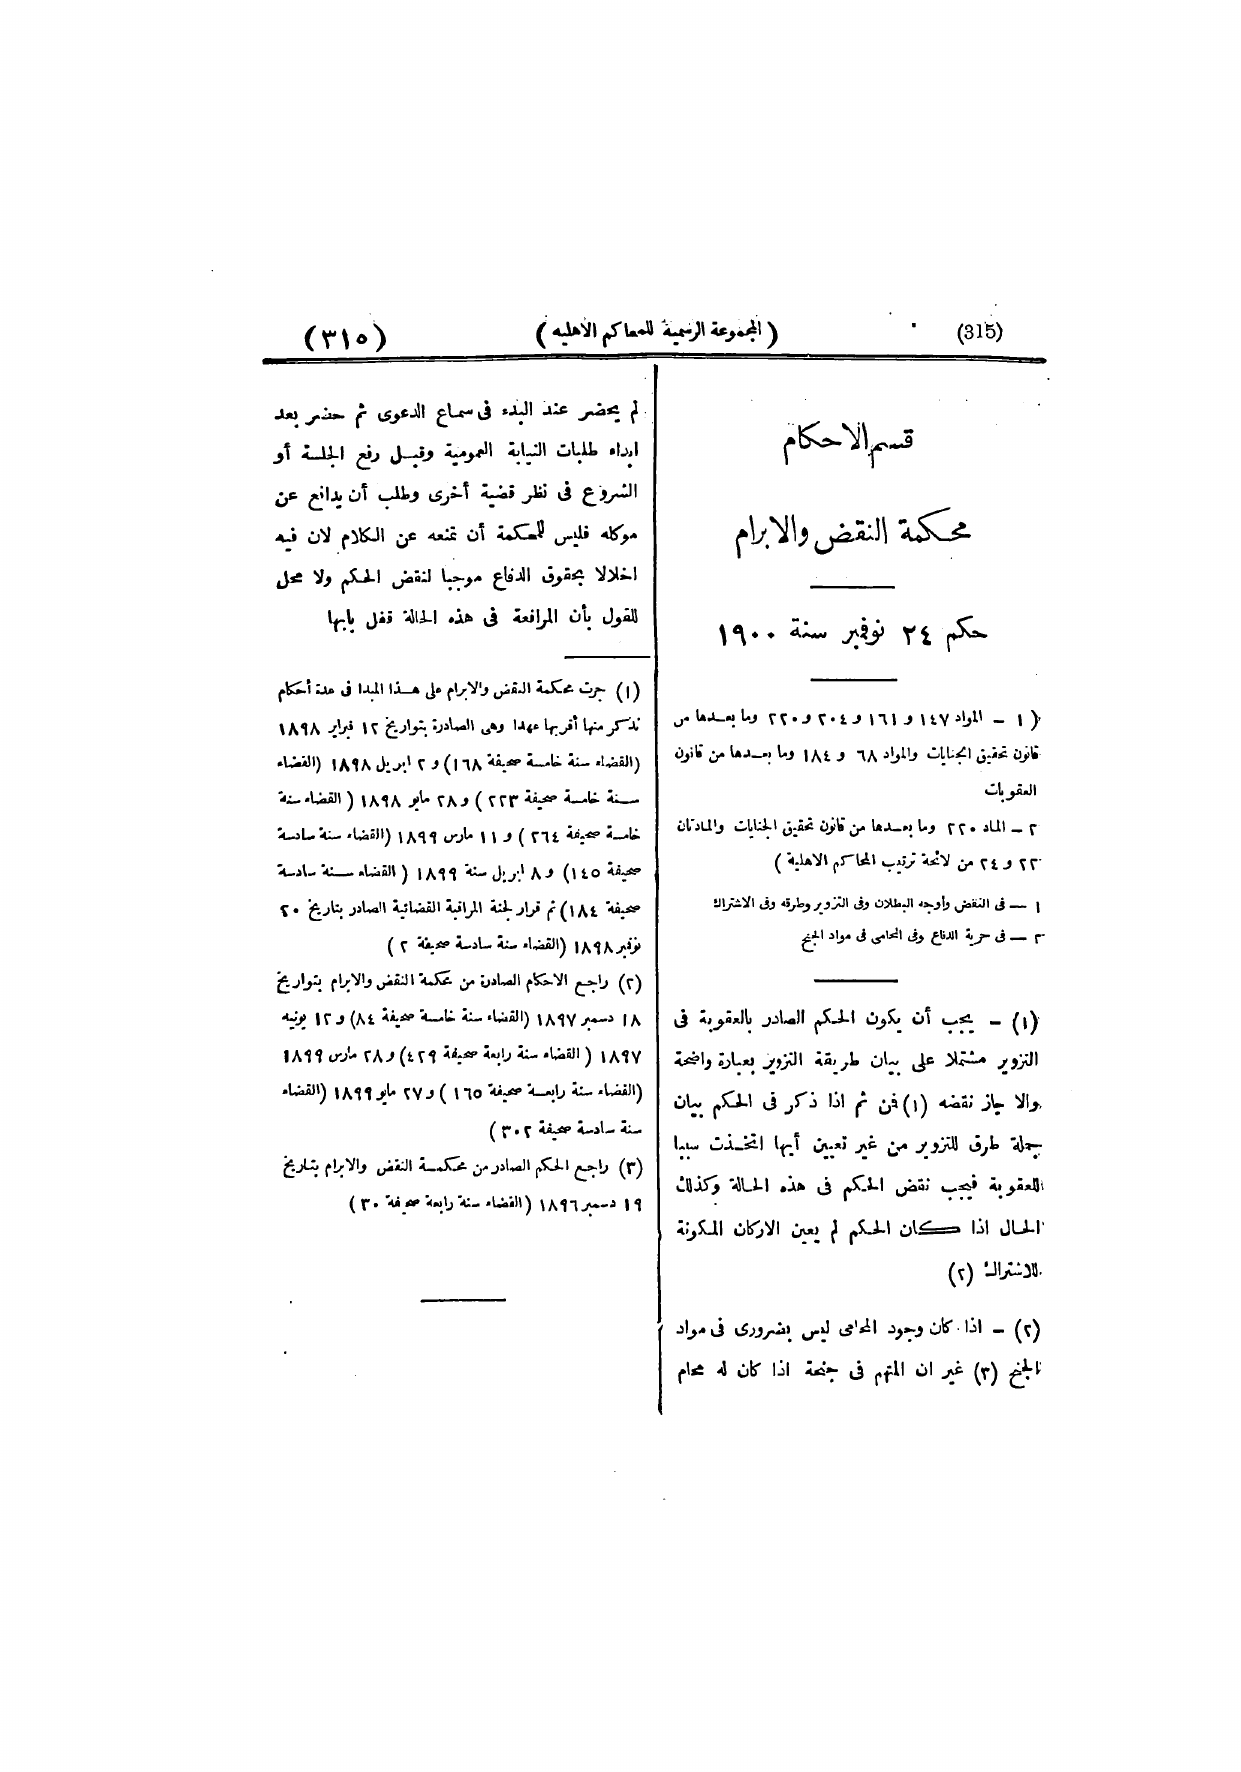 (315) ( المجموعة الرسمية للمحاكم الاهليه ) (٣١٥)
قسم الاحكام
محكمة النقض والابرام
حكم ٢٤ نوفمبر سنة ١٩٠٠
( ١ – المواد ١٤٧ و ١٦١ و ٢٠٤ و ٢٢٠ وما بعدها من
قانون تحقيق الجنايات والمواد ٦٨ و ١٨٤ وما بعدها من قانون
العقوبات
٢ – الماد ٢٢٠ وما بعدها من قانون تحقيق الجنايات والمادتان
٢٣ و ٢٤ من لائحة ترتيب المحاكم الاهلية )
١ — فى النقض وأوجه البطلان وفى التزوير وطرقه وفى الاشتراك
٢ — فى حرية الدفاع وفى المحامى فى مواد الجنح
(١) – يجب أن يكون الحكم الصادر بالعقوبة فى
التزوير مشتملا على بيان طريقة التزوير بعبارة واضحة
والا جاز نقضه (١) فمن ثم اذا ذكر فى الحكم بيان
جملة طرق للتزوير من غير تعيين أيها اتخذت سببا
للعقوبة فيجب نقض الحكم فى هذه الحالة وكذلك
الحال اذا كان الحكم لم يعين الاركان المكونة
للاشتراك (٢)
(٢) – اذا كان وجود المحامى ليس بضرورى فى مواد
الجنح (٣) غير ان المتهم فى جنحة اذا كان له محام
لم يحضر عند البدء فى سماع الدعوى ثم حضر بعد
ابداء طلبات النيابة العمومية وقبل رفع الجلسة أو
الشروع فى نظر قضية أخرى وطلب أن يدافع عن
موكله فليس للمحكمة أن تمنعه عن الكلام لان فيه
اخلالا بحقوق الدفاع موجبا لنقض الحكم ولا محل
للقول بأن المرافعة فى هذه الحالة قفل بابها
(١) جرت محكمة النقض والابرام على هذا المبدا فى عدة أحكام
نذكر منها أقربها عهدا وهى الصادرة بتواريخ ١٢ فبراير ١٨٩٨
(القضاء سنة خامسة صحيفة ١٦٨) و ٢ ابريل ١٨٩٨ (القضاء
سنة خامسة صحيفة ٢٢٣ ) و ٢٨ مايو ١٨٩٨ ( القضاء سنة
خامسة صحيفة ٢٦٤ ) و ١١ مارس ١٨٩٩ (القضاء سنة سادسة
صحيفة ١٤٥) و ٨ ابريل سنة ١٨٩٩ ( القضاء سنة سادسة
صحيفة ١٨٤) ثم قرار لجنة المراقبة القضائية الصادر بتاريخ ٢٠
نوفمبر ١٨٩٨ (القضاء سنة سادسة صحيفة ٢ )
(٢) راجع الاحكام الصادرة من محكمة النقض والابرام بتواريخ
١٨ دسمبر ١٨٩٧ (القضاء سنة خامسة صحيفة ٨٤) و ١٢ يونيه
١٨٩٧ ( القضاء سنة رابعة صحيفة ٤٢٩) و ٢٨ مارس ١٨٩٩
(القضاء سنة رابعة صحيفة ١٦٥ ) و ٢٧ مايو ١٨٩٩ (القضاء
سنة سادسة صحيفة ٣٠٢ )
(٣) راجع الحكم الصادر من محكمة النقض والابرام بتاريخ
١٩ دسمبر ١٨٩٦ (القضاء سنة رابعة صحيفة ٣٠ )